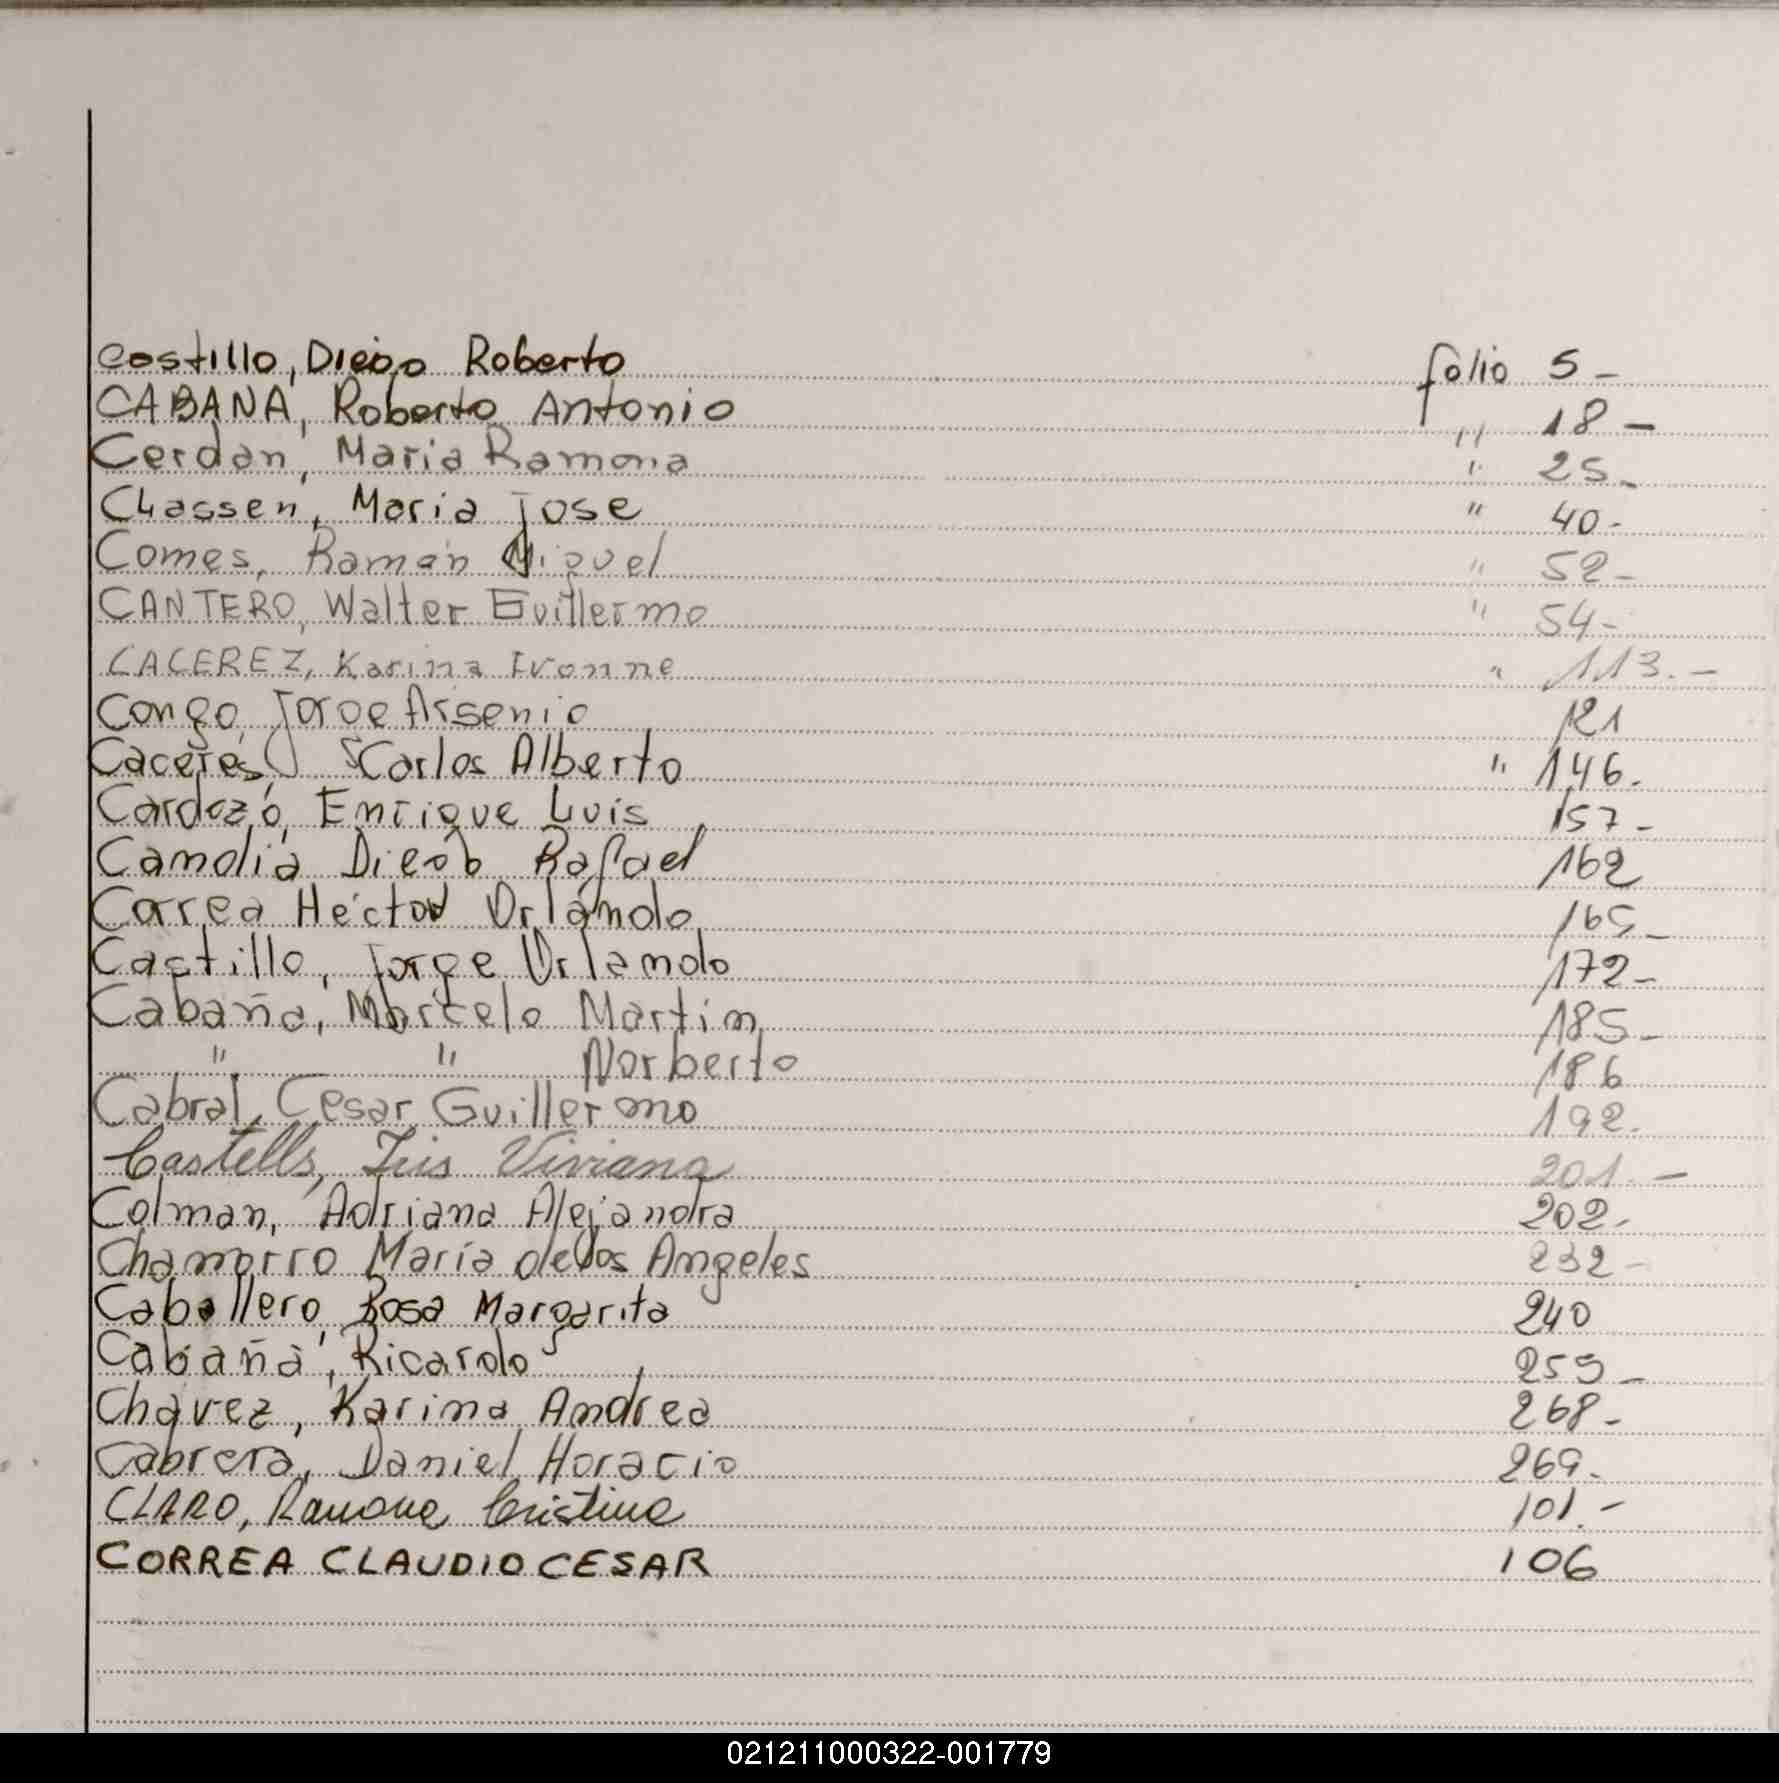 Castillo, Diego Roberto folio 5-
CABANA, Roberto Antonio " 18-
Cerdan, Maria Ramona " 25-
Classen, Maria Jose " 40-
Comes, Ramón Miguel " 52-
CANTERO, Walter Guillermo " 54-
CACEREZ, Karina Ivonne " 113.-
Congo, Jorge Arsenio 121
Caceres, Carlos Alberto " 146.
Cardozo, Enrique Luis 157-
Candia Diego Rafael 162
Correa Héctor Orlando 165-
Castillo, Jorge Orlando 172-
Cabaña, Marcelo Martin 185-
" " Norberto 186
Cabral, Cesar Guillermo 192.
Castells, Iris Viviana 201.-
Colman, Adriana Alejandra 202.
Chamorro María de los Angeles 232-
Caballero, Rosa Margarita 240
Cabaña, Ricardo 255-
Chavez, Karina Andrea 268-
Cabrera, Daniel Horacio 269.
CLARO, Ramona Cristina 101.-
CORREA CLAUDIO CESAR 106
021211000322-001779